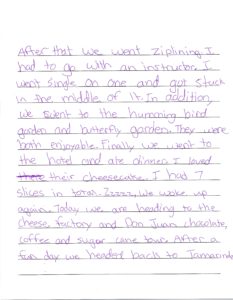 After that we went ziplining. I
had to go with an instructor. I
went single on one and got stuck
in the middle of it. In addition,
we went to the humming bird
garden and butterfly garden. They were
both enjoyable. Finally we went to
the hotel and ate dinner. I loved
their cheesecake. I had 7
slices in total. Zzzzz, We woke up
again. Today we are heading to the
cheese factory and Don Juan chocolate,
coffee and sugar cane tour. After a
fun day we headed back to Tamarindo